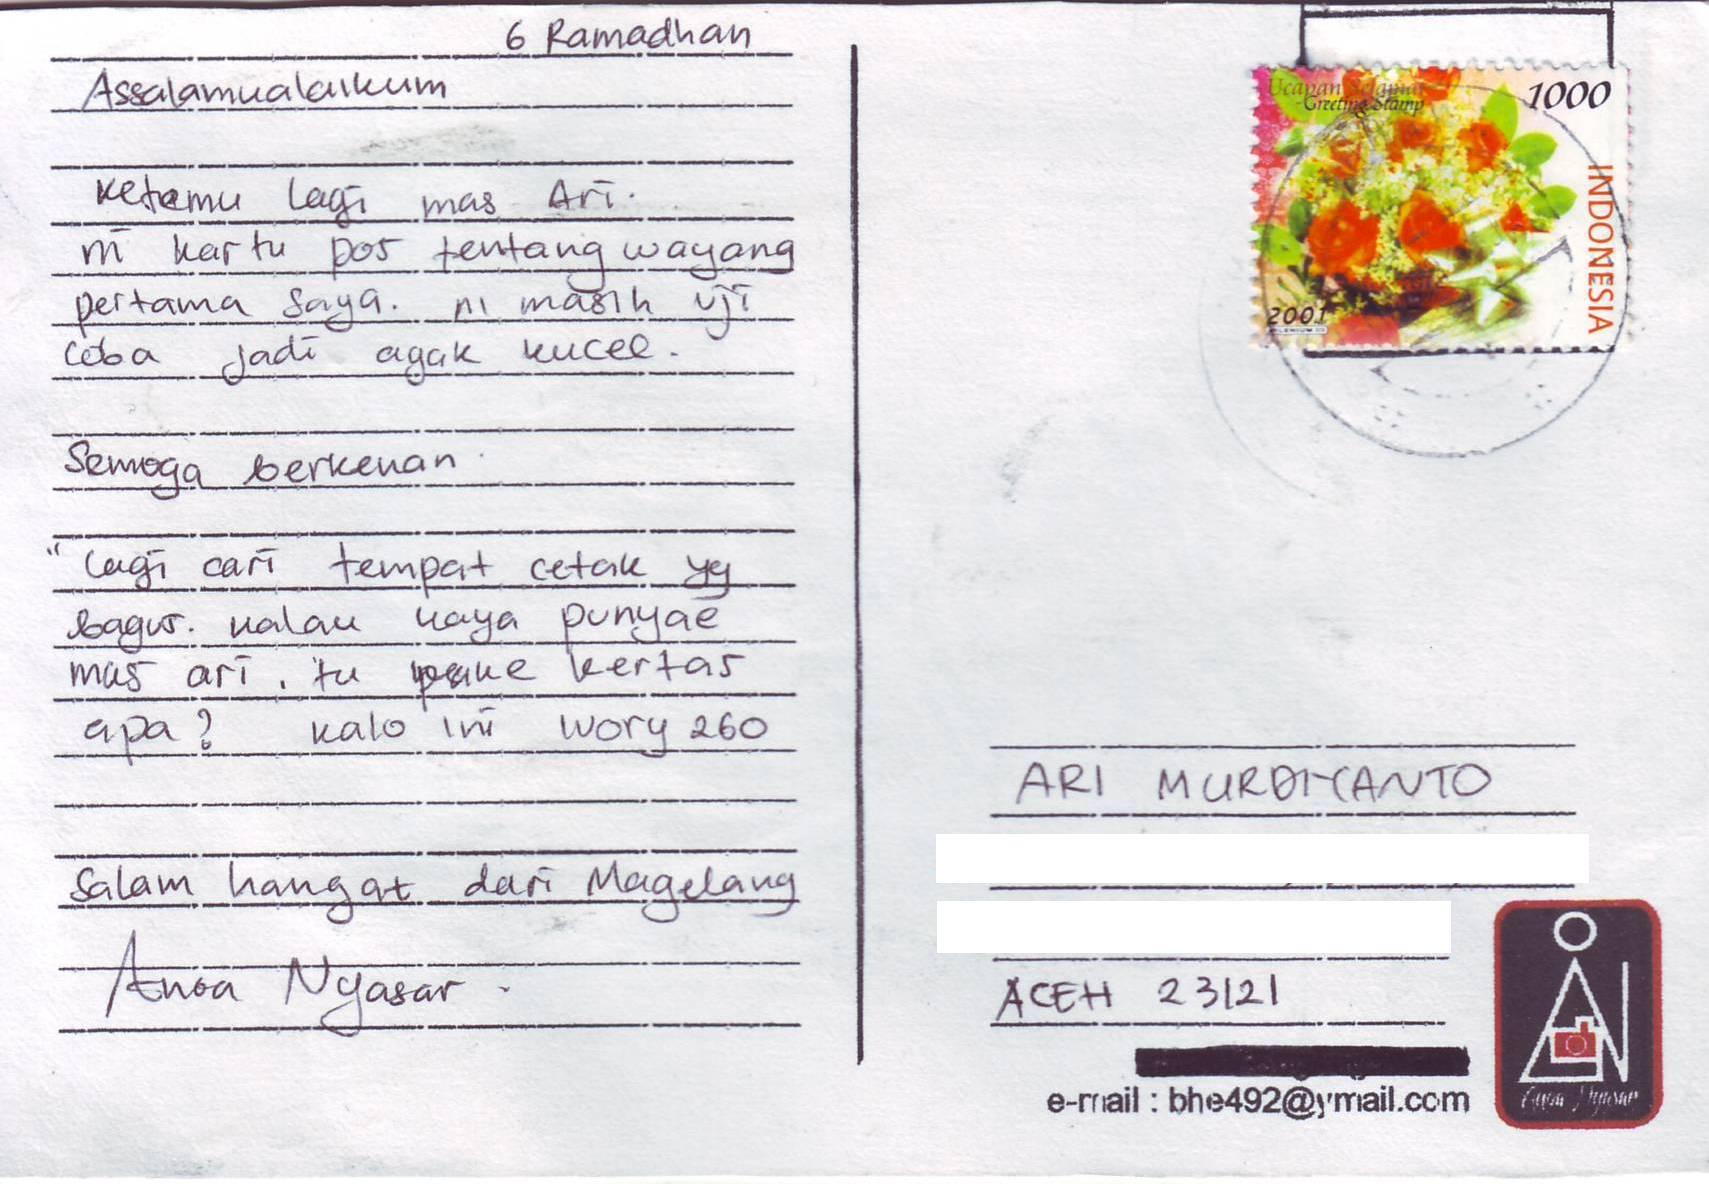 6 Ramadhan
Assalamualaikum
Ketemu lagi mas Ari.
ni kartu pos tentang wayang
pertama saya. ni masih uji
coba jadi agak kucel.
Semoga berkenan.
" Lagi cari tempat cetak yg
bagus. kalau kaya punyae
mas ari. tu pake kertas
apa? kalo ini Ivory 260
Salam hangat dari Magelang
Anoa Nyasar.
Ucapan Selamat
Greeting Stamp
1000
INDONESIA
2001
ARI MURDIYANTO
ACEH 23121
e-mail : bhe492@ymail.com
Anoa Nyasar